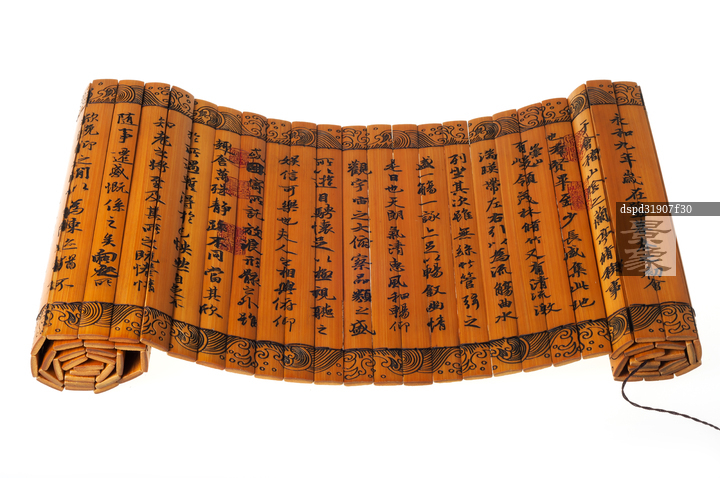 永和九年歲在
會
于會稽山陰之蘭亭脩稧事
也羣賢畢至少長咸集此地
有崇山峻領茂林脩竹又有清流激
湍暎帶左右引以為流觴曲水
列坐其次雖無絲竹管弦之
盛一觴一詠亦足以暢敘幽情
是日也天朗氣清惠風和暢仰
觀宇宙之大俯察品類之盛
所以遊目騁懷足以極視聽之
娛信可樂也夫人之相與俯仰
或因寄所託放浪形骸之外雖
趣舍萬殊靜躁不同當其欣
於所遇蹔得於己快然自足不
知老之將至及其所之既惓情
隨事遷感慨係之矣向之所
欣俛仰之間以為陳迹猶不
dspd31907f30